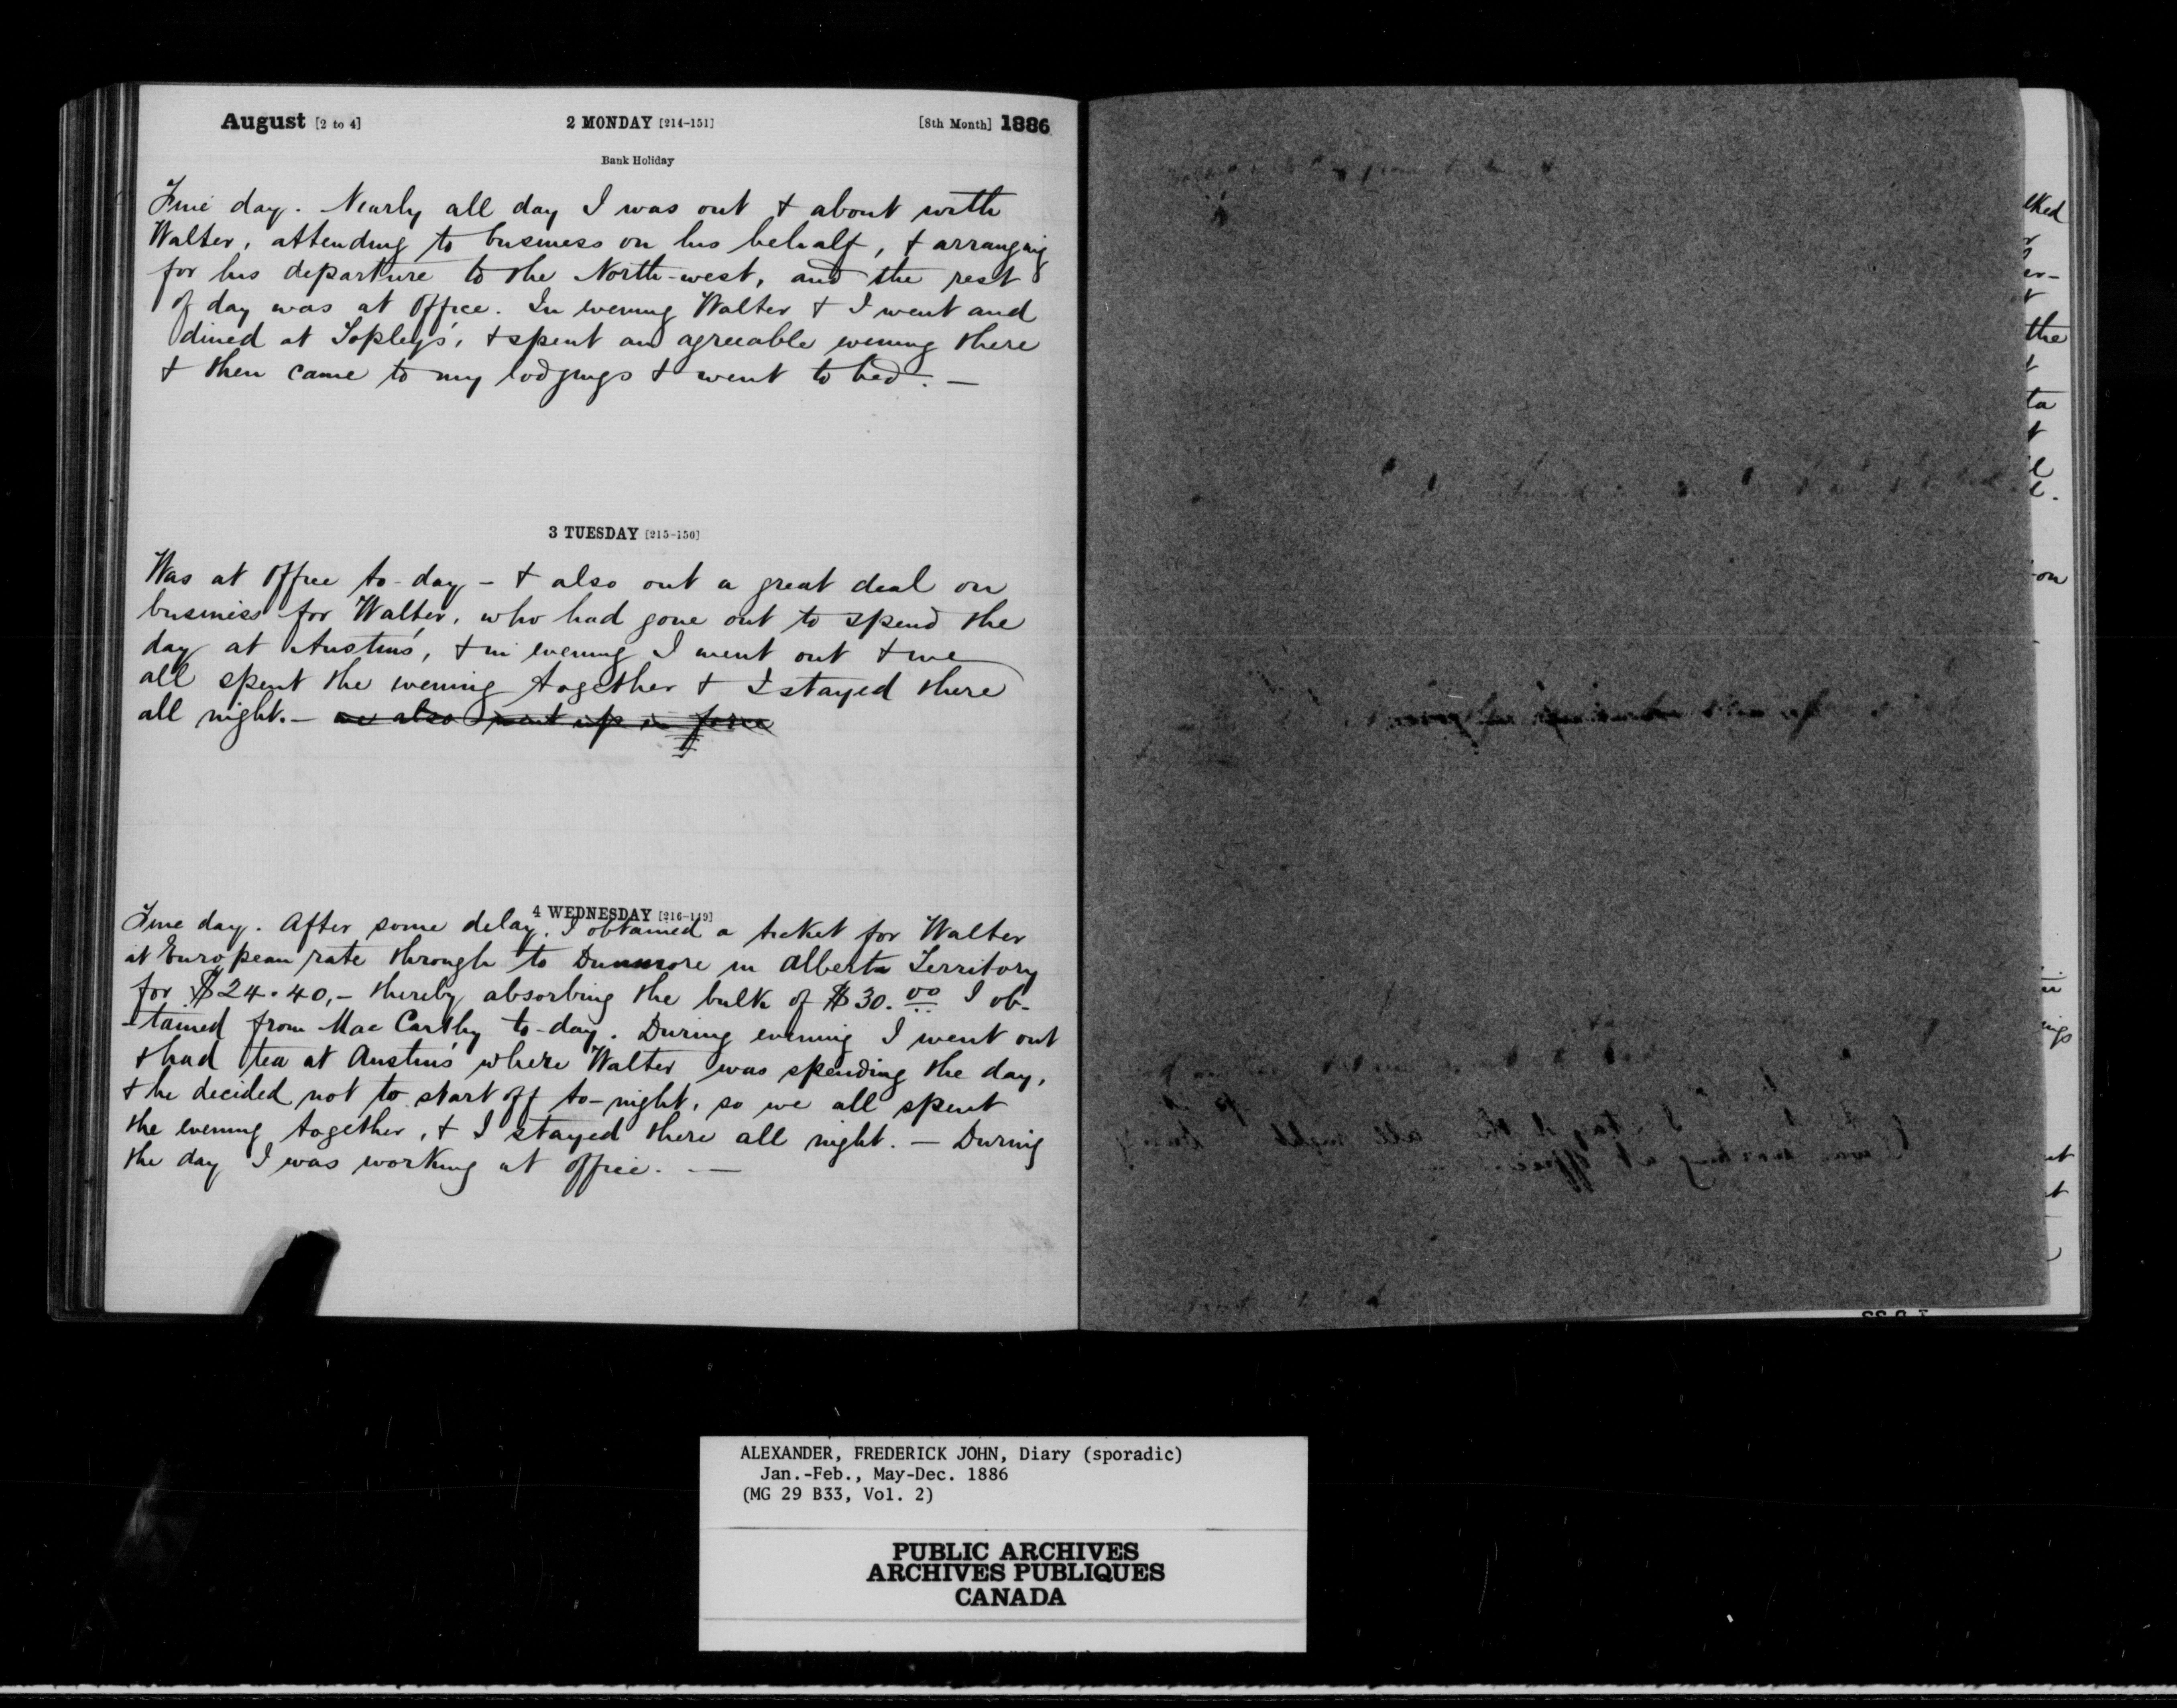 August [2 to 4] 2 MONDAY [214-151] [8th Month] 1886
Bank Holiday
Fine day. Nearly all day I was out & about with
Walter, attending to business on his behalf, & arranging
for his departure to the North-west, and the rest
of day was at office. In evening Walter & I went and
dined at Topley's, & spent an agreeable evening there
& then came to my lodgings & went to bed. —
3 TUESDAY [215-150]
Was at office to-day - & also out a great deal on
business for Walter, who had gone out to spend the
day at Austin's, & in evening I went out & we
all spent the evening together & I stayed there
all night. — we also went up in force
4 WEDNESDAY [216-149]
Fine day. After some delay, I obtained a ticket for Walter
at European rate through to Dunmore in Alberta Territory
for $24.40, - thereby absorbing the bulk of $30.00 I ob-
-tained from Mac Carthy to-day. During evening I went out
& had tea at Austin's where Walter was spending the day,
& he decided not to start off to-night, so we all spent
the evening together, & I stayed there all night. — During
the day I was working at office. —
lked
the
ta
on
ings
ALEXANDER, FREDERICK JOHN, Diary (sporadic)
Jan.-Feb., May-Dec. 1886
(MG 29 B33, Vol. 2)
PUBLIC ARCHIVES
ARCHIVES PUBLIQUES
CANADA